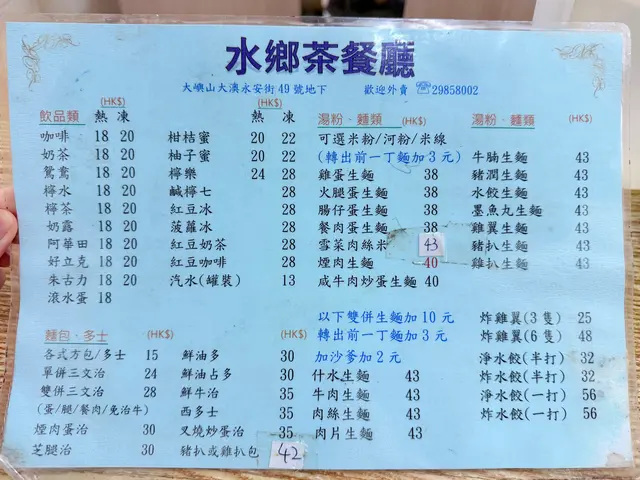 水鄉茶餐廳
大嶼山大澳永安街49號地下 歡迎外賣 ☎29858002
(HK$)
飲品類 熱 凍
咖啡 18 20
奶茶 18 20
鴛鴦 18 20
檸水 18 20
檸茶 18 20
奶露 18 20
阿華田 18 20
好立克 18 20
朱古力 18 20
滾水蛋 18
(HK$)
熱 凍
柑桔蜜 20 22
柚子蜜 20 22
檸樂 24 28
鹹檸七 28
紅豆冰 28
菠蘿冰 28
紅豆奶茶 28
紅豆咖啡 28
汽水(罐裝) 13
湯粉、麵類 (HK$)
可選米粉/河粉/米線
(轉出前一丁麵加3元)
雞蛋生麵 38
火腿蛋生麵 38
腸仔蛋生麵 38
餐肉蛋生麵 38
雪菜肉絲米 43
煙肉生麵 40
咸牛肉炒蛋生麵 40
湯粉、麵類 (HK$)
牛腩生麵 43
豬潤生麵 43
水餃生麵 43
墨魚丸生麵 43
雞翼生麵 43
豬扒生麵 43
雞扒生麵 43
麵包、多士 (HK$)
各式方包/多士 15
單併三文治 24
雙併三文治 28
(蛋/腿/餐肉/免治牛)
煙肉蛋治 30
芝腿治 30
(HK$)
鮮油多 30
鮮油占多 30
鮮牛治 35
西多士 35
叉燒炒蛋治 35
豬扒或雞扒包 42
以下雙併生麵加10元
轉出前一丁麵加3元
加沙爹加2元
什水生麵 43
牛肉生麵 43
肉絲生麵 43
肉片生麵 43
炸雞翼(3隻) 25
炸雞翼(6隻) 48
淨水餃(半打) 32
炸水餃(半打) 32
淨水餃(一打) 56
炸水餃(一打) 56